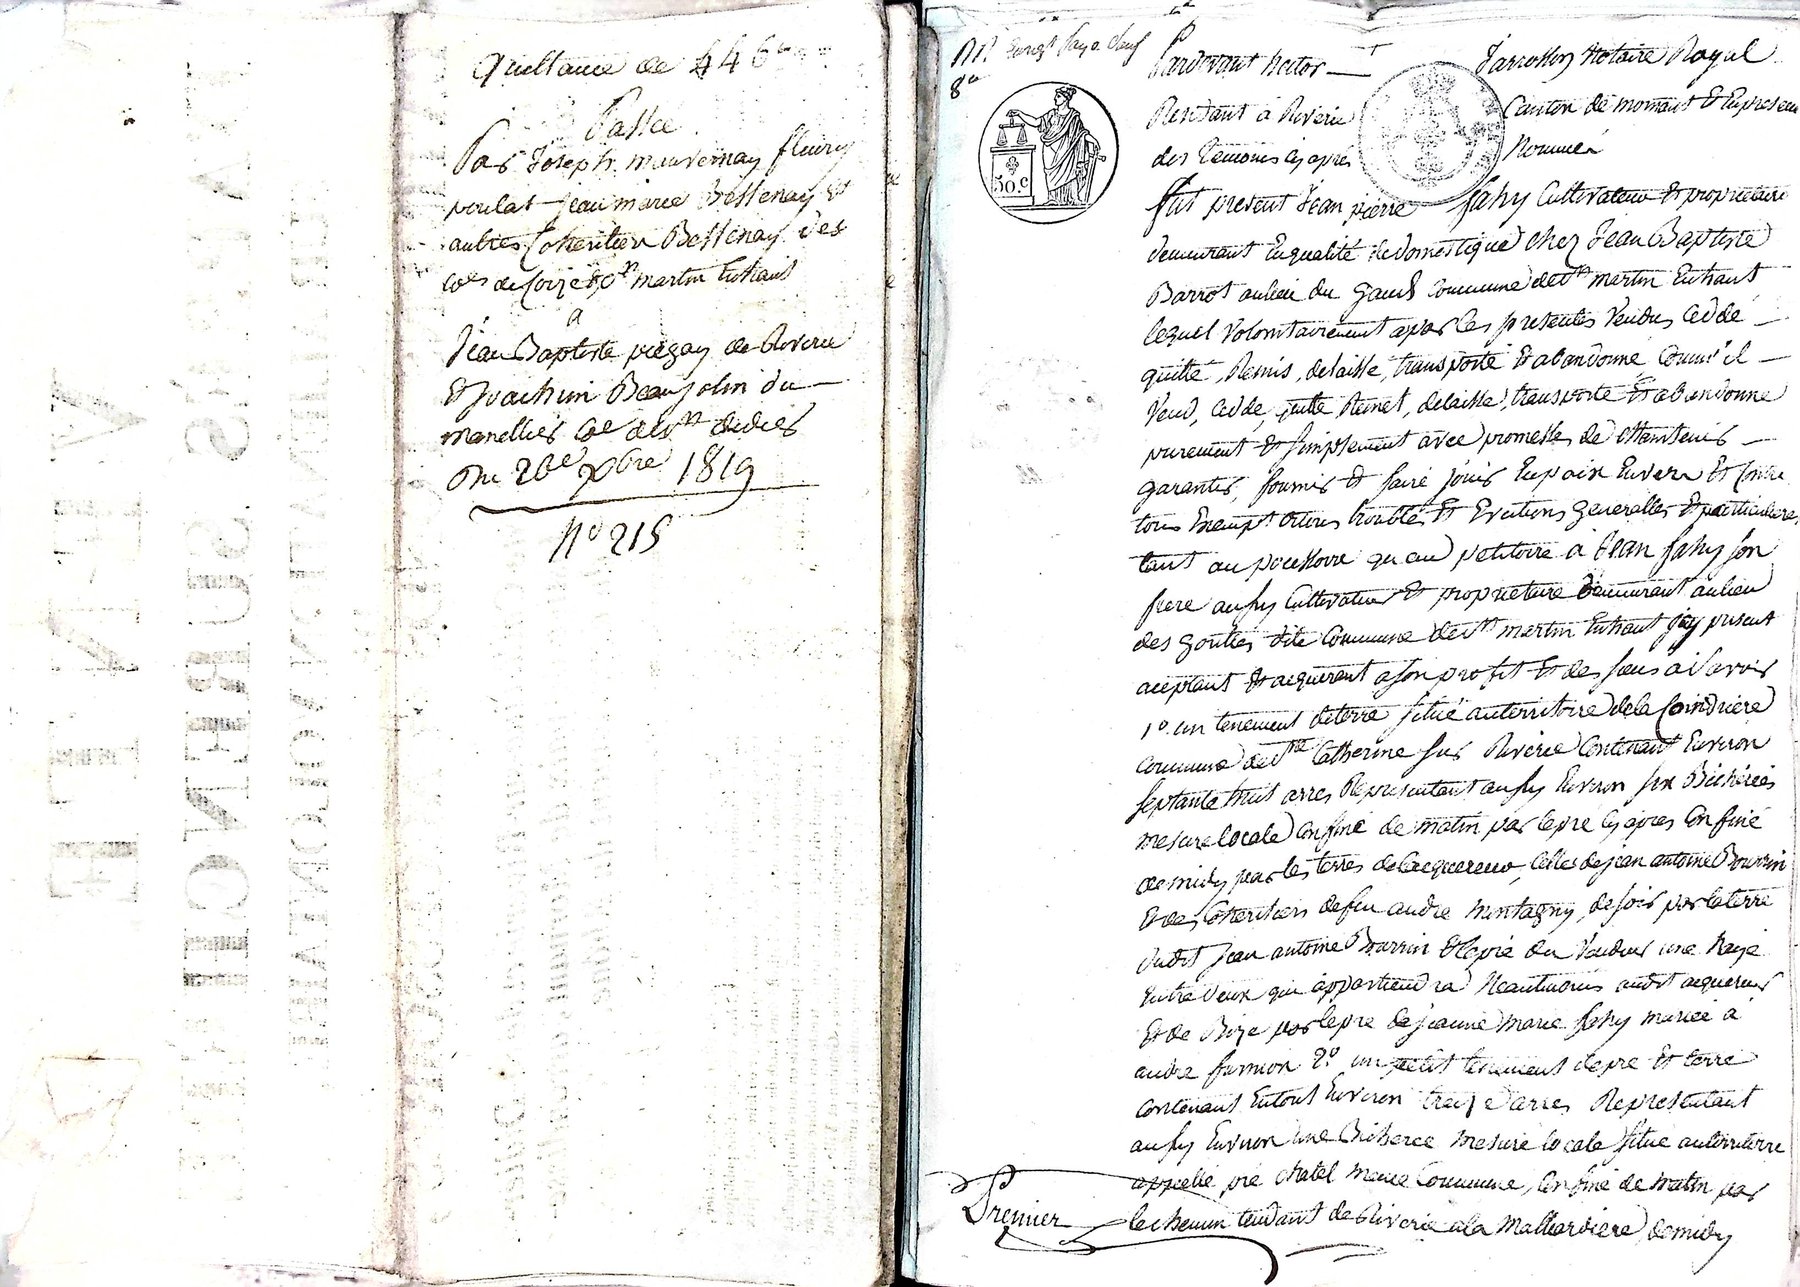 Quittance de 446
Passée
Par Joseph mauvernay fleury
poulat jean marie Bessenay et
autres Coheritiers Bessenay des
coes de Soizet St martin Enhaut
a
Jean Baptiste piegay de Riverie
Et Joachim Beaujolin du
manellier Coe de St didier
Du 26e Xbre 1819
No 215
50.c
Pardevant hector Jarrosson Notaire Royal
Residant a Riverie Canton de mornant Et En presence
des Temoins cy après Nommés
fut present Jean pierre fahy Cultivateur Et proprietaire
demeurant En qualité de domestique chez Jean Baptiste
Barrot au lieu du Commune de St martin Enhaut
lequel Volontairement a par les presentes Vendu, Cédé
quitté, Remis, delaissé, transporté Et abandonné Comm'il
Vend, Cedde, quitte Remet, delaisse, transporte Et abandonne
purement Et simplement avec promesse de Maintenir
garantir, fournir Et faire jouir En paix Envers Et Contre
tous Exempt de tous troubles Et Evictions generalles Et particulieres
tant au possessoire qu'au petitoire a Jean fahy son
frere aussy Cultivateur Et proprietaire demeurant au lieu
des goutes dite Commune de St martin Enhaut jcy present
aceptant Et acquerant a son profit Et des siens à Savoir
1o un tenement de terre situé au territoire de la
Commune de Ste Catherine sur Riverie Contenant Environ
septante huit arres Representant aussy Environ six Bicherées
mesure locale Confiné de matin par le pre cy après Confiné
de midy par les terres de l'acquereur, Celles de jean antoine Bourrin
Et des Coheritiers de feu andré montagny, de soir par la terre
dudit Jean antoine Bourrin Et le pré du Vendeur une haye
Entre deux qui appartiendra Neantmoins audit acquereur
Et de Bize par le pre de jeanne marie fahy mariée à
andré 2o un petit tenement de pre Et terre
Contenant En tout Environ treize arres Representant
aussy Environ une Bicherée mesure locale situé au territoire
appellé pré Chatel meme Commune, Confiné de matin par
Premier
le chemin tendant de Riverie a la Mallardiere, de midy